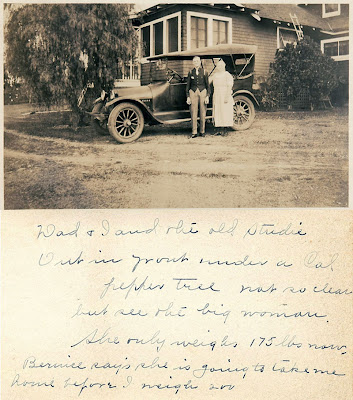 Dad & I and the old Studie
Out in front under a Cal
pepper tree not so clear
but see the big woman.
She only weighs 175 lbs now,
Bernice says she is going to take me
home before I weigh 200